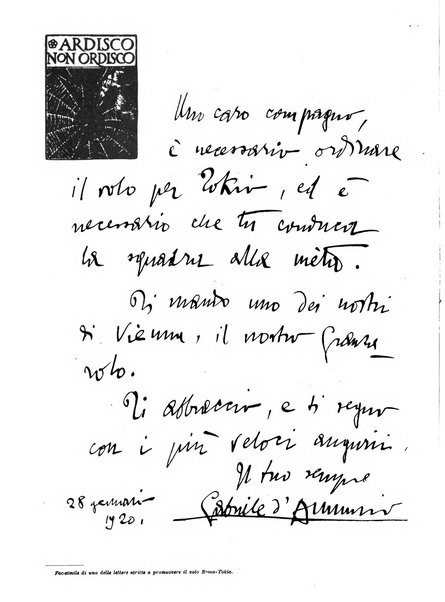 ARDISCO
NON ORDISCO
Mio caro compagno,
è necessario ordinare
il volo per Tokio, ed è
necessario che tu conduca
la squadra alla mèta.
Ti mando uno dei nostri
di Vienna, il nostro Granzarolo.
Ti abbraccio, e ti seguo
con i più veloci augurii.
Il tuo sempre
Gabriele d'Annunzio
28 gennaio
1920.
Fac-simile di una delle lettere scritte a promuovere il volo Roma-Tokio.